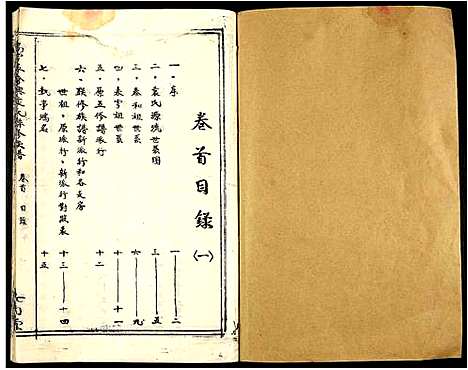 卷首目錄(一)
一·序 一—二
二·袁氏源流世系圖 三—五
三·泰和祖世系 六—九
四·泰亨祖世系 十—十一
五·原五修譜派行 十二
六·聯修族譜新派行和各支房
世祖,原派行,新派行對照表 十三—十四
七·執事鴻名 十五
卷首 目錄